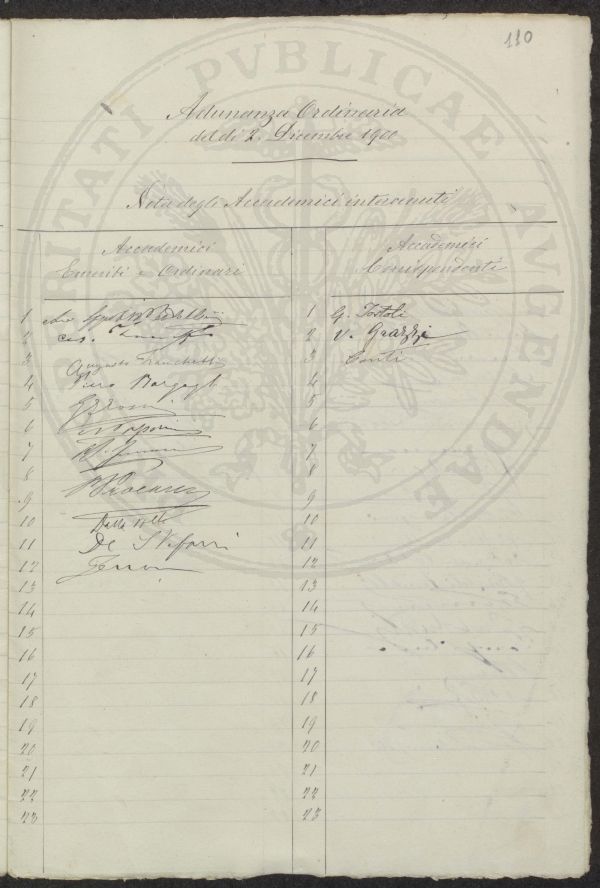 110
Adunanza Ordinaria
del dì 2. Dicembre 1900
Nota degli Accademici intervenuti
Accademici
Emeriti e Ordinari
Accademici
Corrispondenti
1
2
3 Augusto Franchetti
4 Piero Bargagli
5
6
7
8
9
10 Dalla Volta
11 De Stefani
12
13
14
15
16
17
18
19
20
21
22
23
1 G. Tortoli
2 V. Grazzi
3 Conti
4
5
6
7
8
9
10
11
12
13
14
15
16
17
18
19
20
21
22
23
PROSPERITATI PVBLICAE AVGENDAE